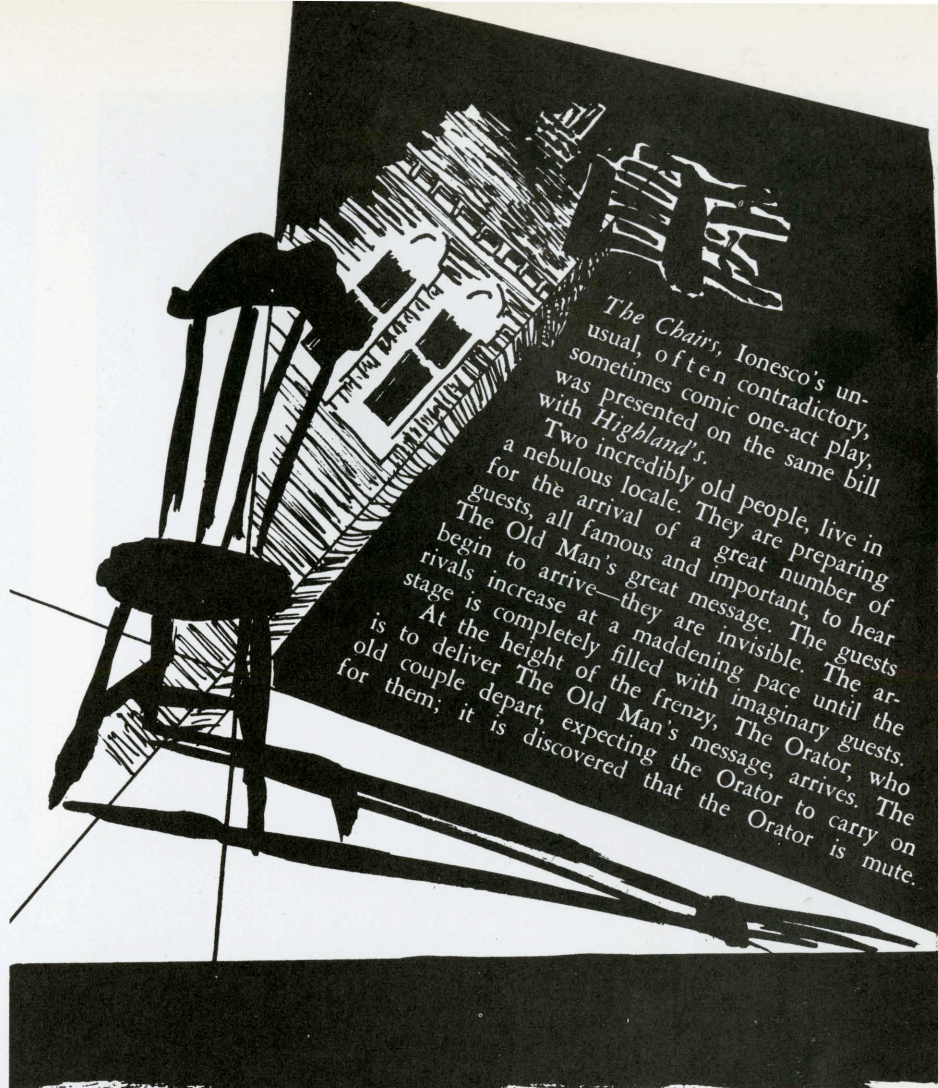 The Chairs, Ionesco's un-
usual, often contradictory,
sometimes comic one-act play,
was presented on the same bill
with Highland's.
Two incredibly old people, live in
a nebulous locale. They are preparing
for the arrival of a great number of
guests, all famous and important, to hear
The Old Man's great message. The guests
begin to arrive—they are invisible. The ar-
rivals increase at a maddening pace until the
stage is completely filled with imaginary guests.
At the height of the frenzy, The Orator, who
is to deliver The Old Man's message, arrives. The
old couple depart, expecting the Orator to carry on
for them; it is discovered that the Orator is mute.